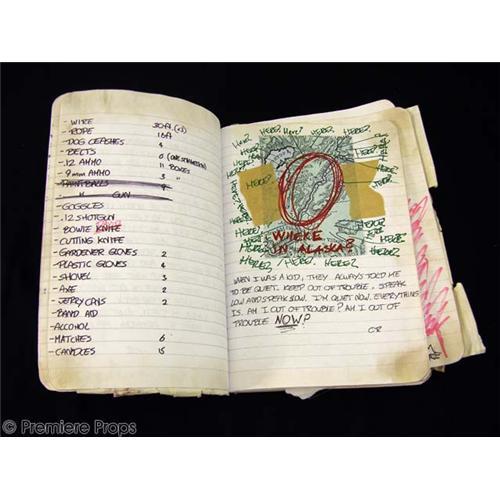 - WIRE 30ft (x2)
- ROPE 18ft
- DOG LEASHES 4
- BELTS 6
- .12 AMMO 11 BOXES
- 9mm AMMO 3 "
- PAINTBALLS 9
- " GUN
- GOGGLES
- .12 SHOTGUN
- BOWIE KNIFE
- CUTTING KNIFE
- GARDENER GLOVES 2
- PLASTIC GLOVES 4
- SHOVEL 3
- AXE 2
- JERRY CANS 2
- BAND AID
- ALCOHOL
- MATCHES 6
- CANDLES 15
HERE? HERE? Here? HERE? HERE?
HERE? HERE?
HERE? HERE?
HERE? HERE?
HERE? HERE?
WHERE
IN ALASKA?
HERE? HERE? HERE? HERE?
WHEN I WAS A KID, THEY ALWAYS TOLD ME
TO BE QUIET. KEEP OUT OF TROUBLE. SPEAK
LOW AND SPEAK SLOW. I'M QUIET NOW. EVERYTHING
IS. AM I OUT OF TROUBLE? AM I OUT OF
TROUBLE NOW?
CR
© Premiere Props